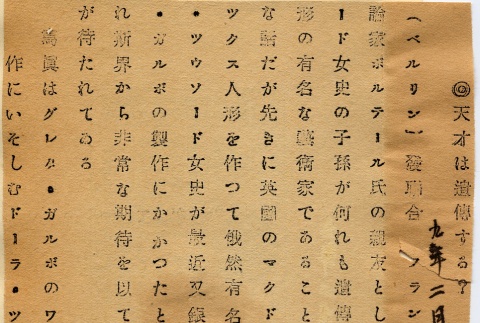 ◎天才は遺傳する?
(ベルリン)發聯合 フラン
論家ボルテール氏の親友とし
ード女史の子孫が何れも遺傳
形の有名な藝術家であること
な話だが先きに英國のマクド
ツクス人形を作つて俄然有名
・ツウソード女史が最近又銀
・ガルボの製作にかかつたと
れ斯界から非常な期待を以て
が待たれてある
寫眞はグレタ・ガルボのワ
作にいそしむドーラ・ツ
九年二月